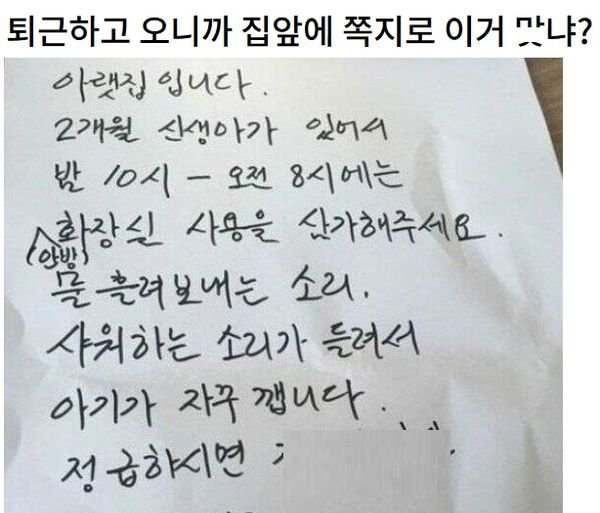 퇴근하고 오니까 집앞에 쪽지로 이거 맞냐?
아랫집 입니다.
2개월 신생아가 있어서
밤 10시 - 오전 8시에는
(안방) 화장실 사용을 삼가해주세요.
물 흘려보내는 소리.
샤워하는 소리가 들려서
아기가 자꾸 깹니다.
정 급하시면